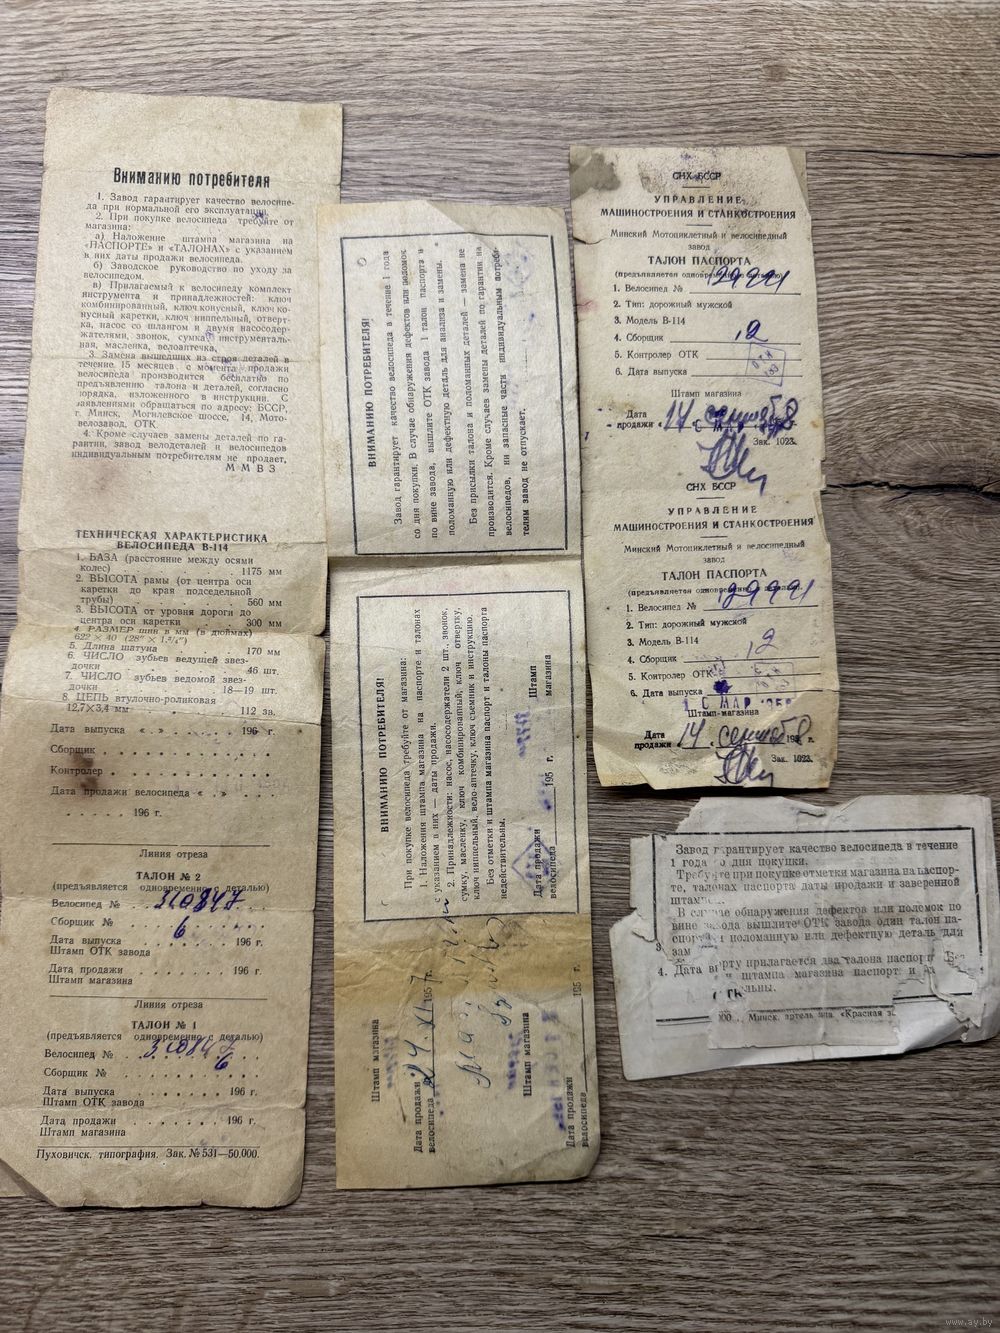 Вниманию потребителя
1. Завод гарантирует качество велосипе-
да при нормальной его эксплуатации.
2. При покупке велосипеда требуйте от
магазина:
а) Наложение штампа магазина на
«ПАСПОРТЕ» и «ТАЛОНАХ» с указанием
в них даты продажи велосипеда.
б) Заводское руководство по уходу за
велосипедом.
в) Прилагаемый к велосипеду комплект
инструмента и принадлежностей: ключ
комбинированный, ключ конусный, ключ ко-
нусный каретки, ключ ниппельный, отверт-
ка, насос со шлангом и двумя насосодер-
жателями, звонок, сумка инструменталь-
ная, масленка, велоаптечка.
3. Замена вышедших из строя деталей в
течение 15 месяцев с момента продажи
велосипеда производится бесплатно по
предъявлению талона и деталей, согласно
порядка, изложенного в инструкции. С
заявлениями обращаться по адресу: БССР,
г. Минск, Могилевское шоссе, 14, Мото
велозавод, ОТК
4. Кроме случаев замены деталей по га-
рантии, завод велодеталей и велосипедов
индивидуальным потребителям не продает.
ММВЗ
ТЕХНИЧЕСКАЯ ХАРАКТЕРИСТИКА
ВЕЛОСИПЕДА В-114
1. БАЗА (расстояние между осями
колес) . . . . . 1175 мм
2. ВЫСОТА рамы (от центра оси
каретки до края подседельной
трубы) . . . . . 560 мм
3. ВЫСОТА от уровня дороги до
центра оси каретки . . . . 300 мм
4. РАЗМЕР шин в мм (в дюймах)
622 × 40 (28" × 1.⁵/₈")
5. Длина шатуна . . . . . 170 мм
6. ЧИСЛО зубьев ведущей звез-
дочки . . . . . 46 шт.
7. ЧИСЛО зубьев ведомой звез-
дочки . . . . . 18—19 шт.
8. ЦЕПЬ втулочно-роликовая
12,7×3,4 мм . . . . . 112 зв.
Дата выпуска « . » . . . . . 196 г.
Сборщик . . . . . . . . . .
Контролер . . . . . . . . . .
Дата продажи велосипеда « . » . . .
. . . . . . 196 г.
Линия отреза
ТАЛОН № 2
(предъявляется одновременно с деталью)
Велосипед № 310847
Сборщик № 6
Дата выпуска . . . . . . 196 г.
Штамп ОТК завода
Дата продажи . . . . . . 196 г.
Штамп магазина
Линия отреза
ТАЛОН № 1
(предъявляется одновременно с деталью)
Велосипед № 310847
Сборщик № 6
Дата выпуска . . . . . . 196 г.
Штамп ОТК завода
Дата продажи . . . . . . 196 г.
Штамп магазина
Пуховичск. типография. Зак. № 531—50.000.
ВНИМАНИЮ ПОТРЕБИТЕЛЯ!
Завод гарантирует качество велосипеда в течение 1 года
со дня покупки. В случае обнаружения дефектов или поломок
по вине завода, вышлите ОТК завода 1 талон паспорта и
поломанную или дефектную деталь для анализа и замены.
Без присылки талона и поломанных деталей — замена не
производится. Кроме случаев замены деталей по гарантии на
велосипедов, ни запасные части индивидуальным потреби-
телям завод не отпускает.
ВНИМАНИЮ ПОТРЕБИТЕЛЯ!
При покупке велосипеда требуйте от магазина:
1. Наложения штампа магазина на паспорте и талонах
с указанием в них — даты продажи.
2. Принадлежности: насос, насосодержатели 2 шт. звонок,
сумку, масленку, ключ комбинированный, ключ отвертку,
ключ ниппельный, вело-аптечку, ключ съемник и инструкцию.
Без отметки и штампа магазина паспорт и талоны паспорта
недействительны.
Дата продажи
велосипеда 195 г.
Штамп
магазина
Штамп магазина
Дата продажи
велосипеда 24. XI 1957 г.
Штамп магазина
Дата продажи
велосипеда 195 г.
СНХ БССР
УПРАВЛЕНИЕ
МАШИНОСТРОЕНИЯ И СТАНКОСТРОЕНИЯ
Минский Мотоциклетный и велосипедный
завод
ТАЛОН ПАСПОРТА
(предъявляется одновременно с деталью)
1. Велосипед №
2. Тип: дорожный мужской
3. Модель В-114
4. Сборщик 12
5. Контролер ОТК
6. Дата выпуска
Штамп магазина
Дата
продажи « 14 сентября 8
Зак. 1023.
СНХ БССР
УПРАВЛЕНИЕ
МАШИНОСТРОЕНИЯ И СТАНКОСТРОЕНИЯ
Минский Мотоциклетный и велосипедный
завод
ТАЛОН ПАСПОРТА
(предъявляется одновременно с деталью)
1. Велосипед №
2. Тип: дорожный мужской
3. Модель В-114
4. Сборщик 12
5. Контролер ОТК
6. Дата выпуска
МАР 1958
Штамп магазина
Дата
продажи 14. сентября 1958 г.
Зак. 1023.
Завод гарантирует качество велосипеда в течение
1 года со дня покупки.
Требуйте при покупке отметки магазина на паспор-
те, талонах паспорта даты продажи и заверенной
штам
В случае обнаружения дефектов или поломок по
вине завода вышлите ОТК завода один талон па-
спорта и поломанную или дефектную деталь для
зам
3.
4. Дата в рту прилагается два талона паспор Без
и штампа магазина паспорт и
ельны.
000 . Минск, артель им. «Красная з
www.ay.by